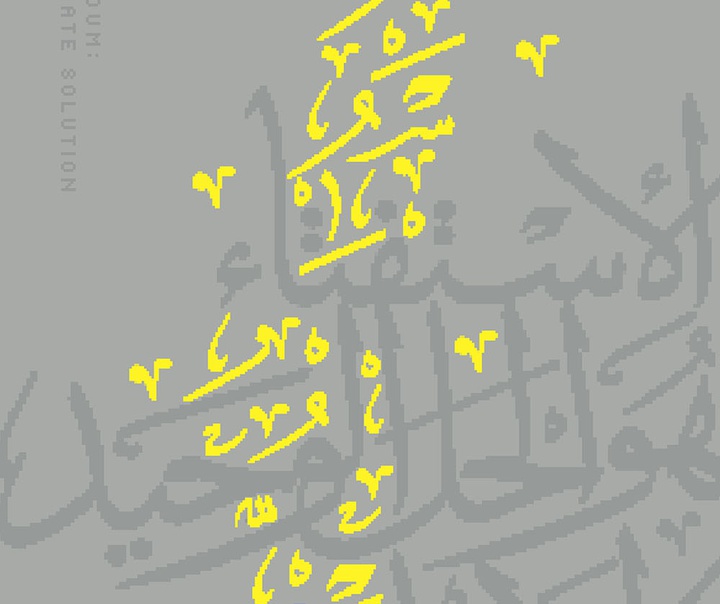 DUM:
ATE SOLUTION
الاستفتاء
هُو الحل الوحيد